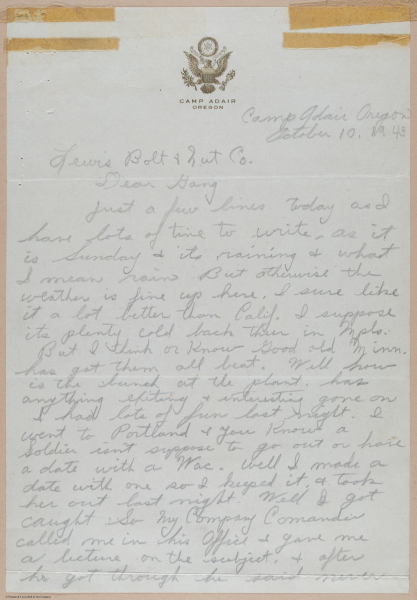 CAMP ADAIR
OREGON
Camp Adair Oregon
October 10, 1943
Lewis Bolt & Nut Co.
Dear Gang
Just a few lines today as I
have lots of time to write, as it
is Sunday & its raining & what
I mean rain But otherwise the
weather is fine up here. I sure like
it a lot better than Calif. I suppose
its plenty cold back ther in Mpls.
But I think or Know Good old Minn.
has got them all beat. Well how
is the bunch at the plant. has
anything exiting & interesting gone on
I had lots of fun last night. I
went to Portland & you Know a
Soldier isn't suppose to go out or have
a date with a Wac. Well I made a
date with one so I keeped it, & took
her out last night. Well I got
caught So My Company Comander
called me in his Office & gave me
a lecture on the subject. & after
he got through he said never